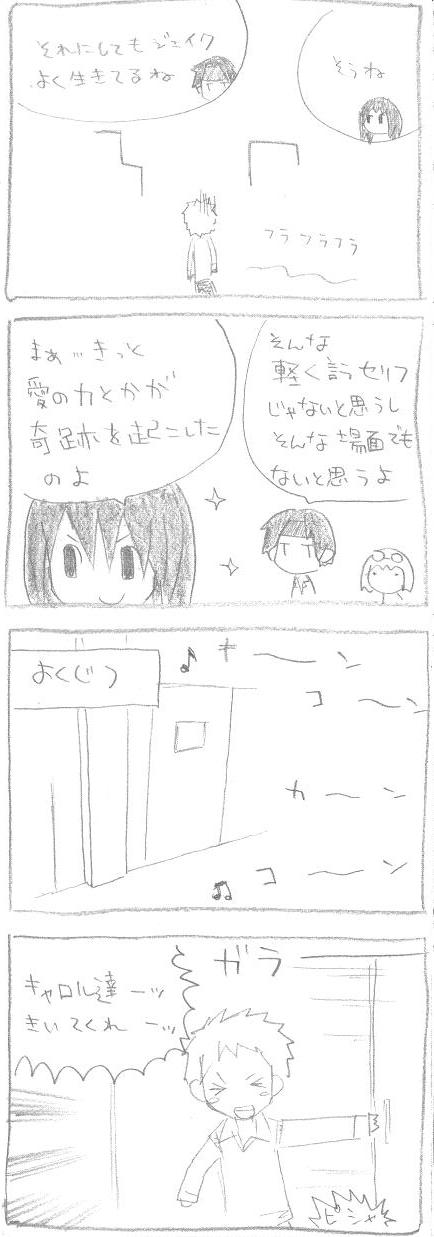 そうね
それにしてもジェイク
よく生きてるね
フラフラフラ
そんな
軽く言うセリフ
じゃないと思うし
そんな場面でも
ないと思うよ
まぁ…きっと
愛の力とかが
奇跡を起こした
のよ
よくじつ
キーン
コーン
カーン
コーン
ガラ
キャロル達ーッ
きいてくれーッ
ピシャ